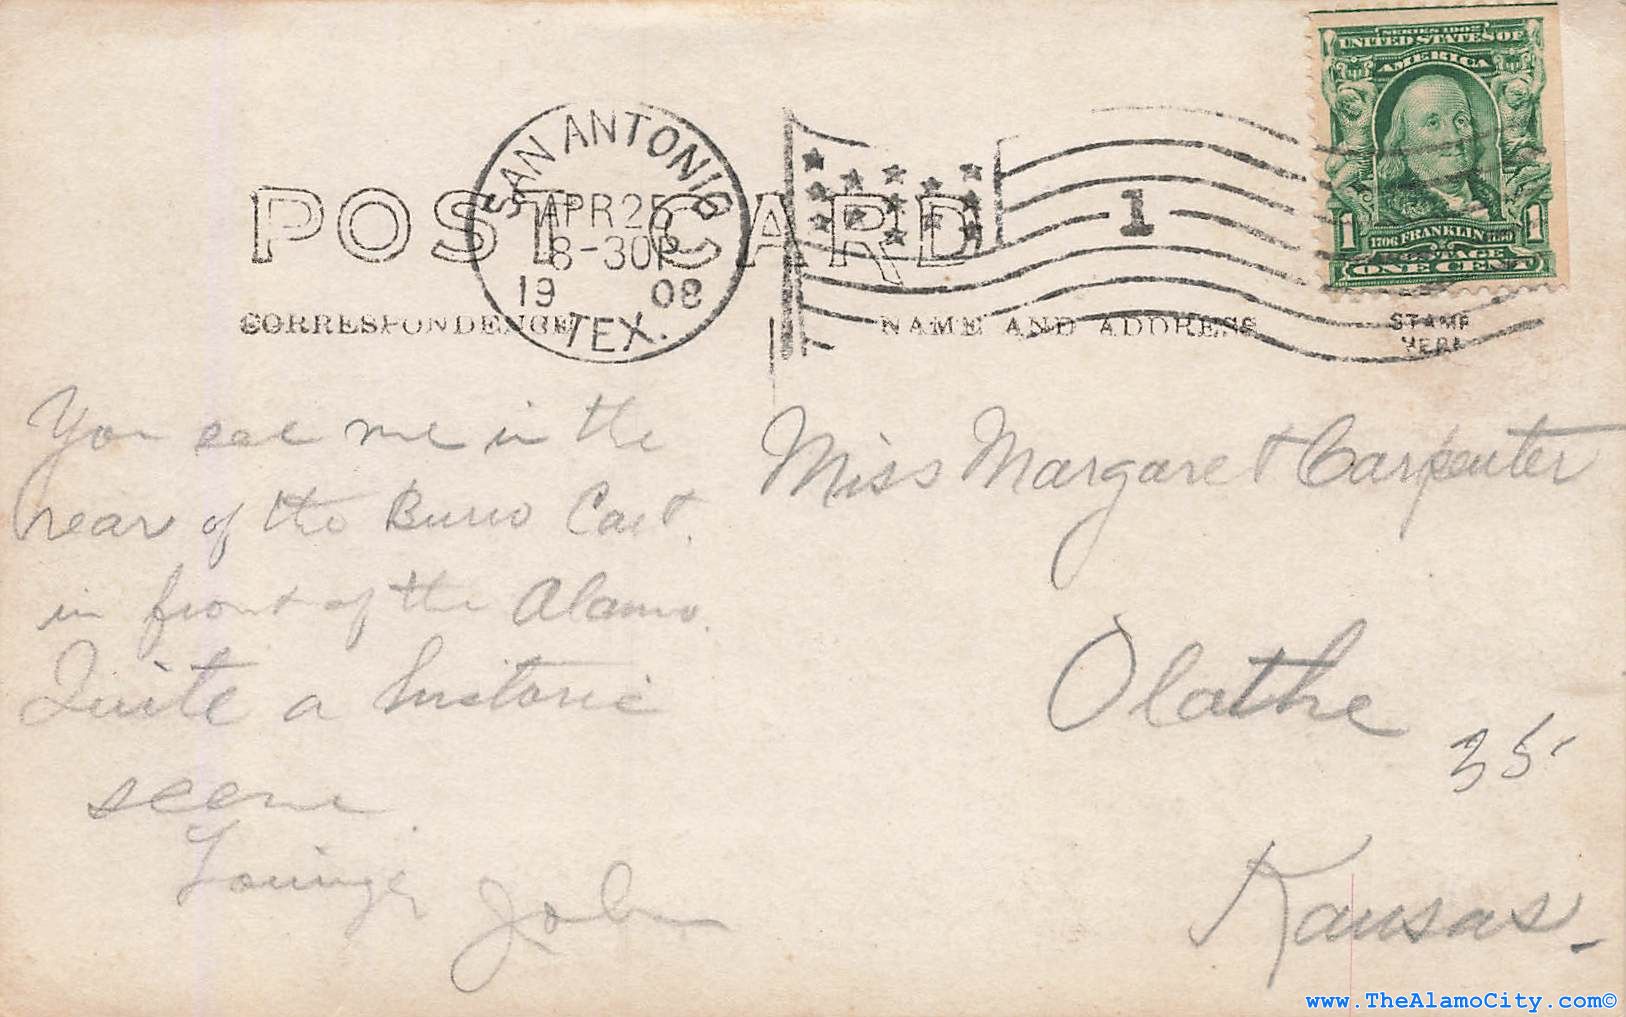 SERIES 1902
UNITED STATES OF
AMERICA
1
1
1706 FRANKLIN 1790
POSTAGE
ONE CENT
SAN ANTONIO
APR 25
8-30P
1908
TEX.
1
POST CARD
CORRESPONDENCE
NAME AND ADDRESS
STAMP
HERE
You see me in the
rear of the Burro Cart.
in front of the Alamo.
Quite a historic
scene
John
Miss Margaret Carpenter
Olathe
35
Kansas
www.TheAlamoCity.com©